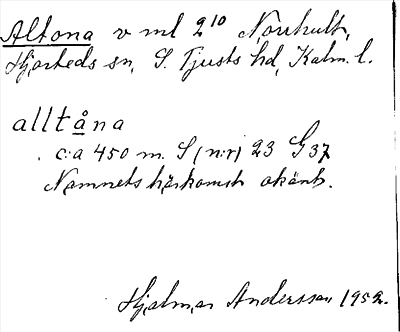 Altona v ml 2¹⁰ Norrhult,
Hjorteds sn, S. Tjusts hd, Kalm. l.
alltåna
c:a 450 m. S (n:r) 23 G 37
Namnets härkomst okänt.
Hjalmar Andersson 1952.